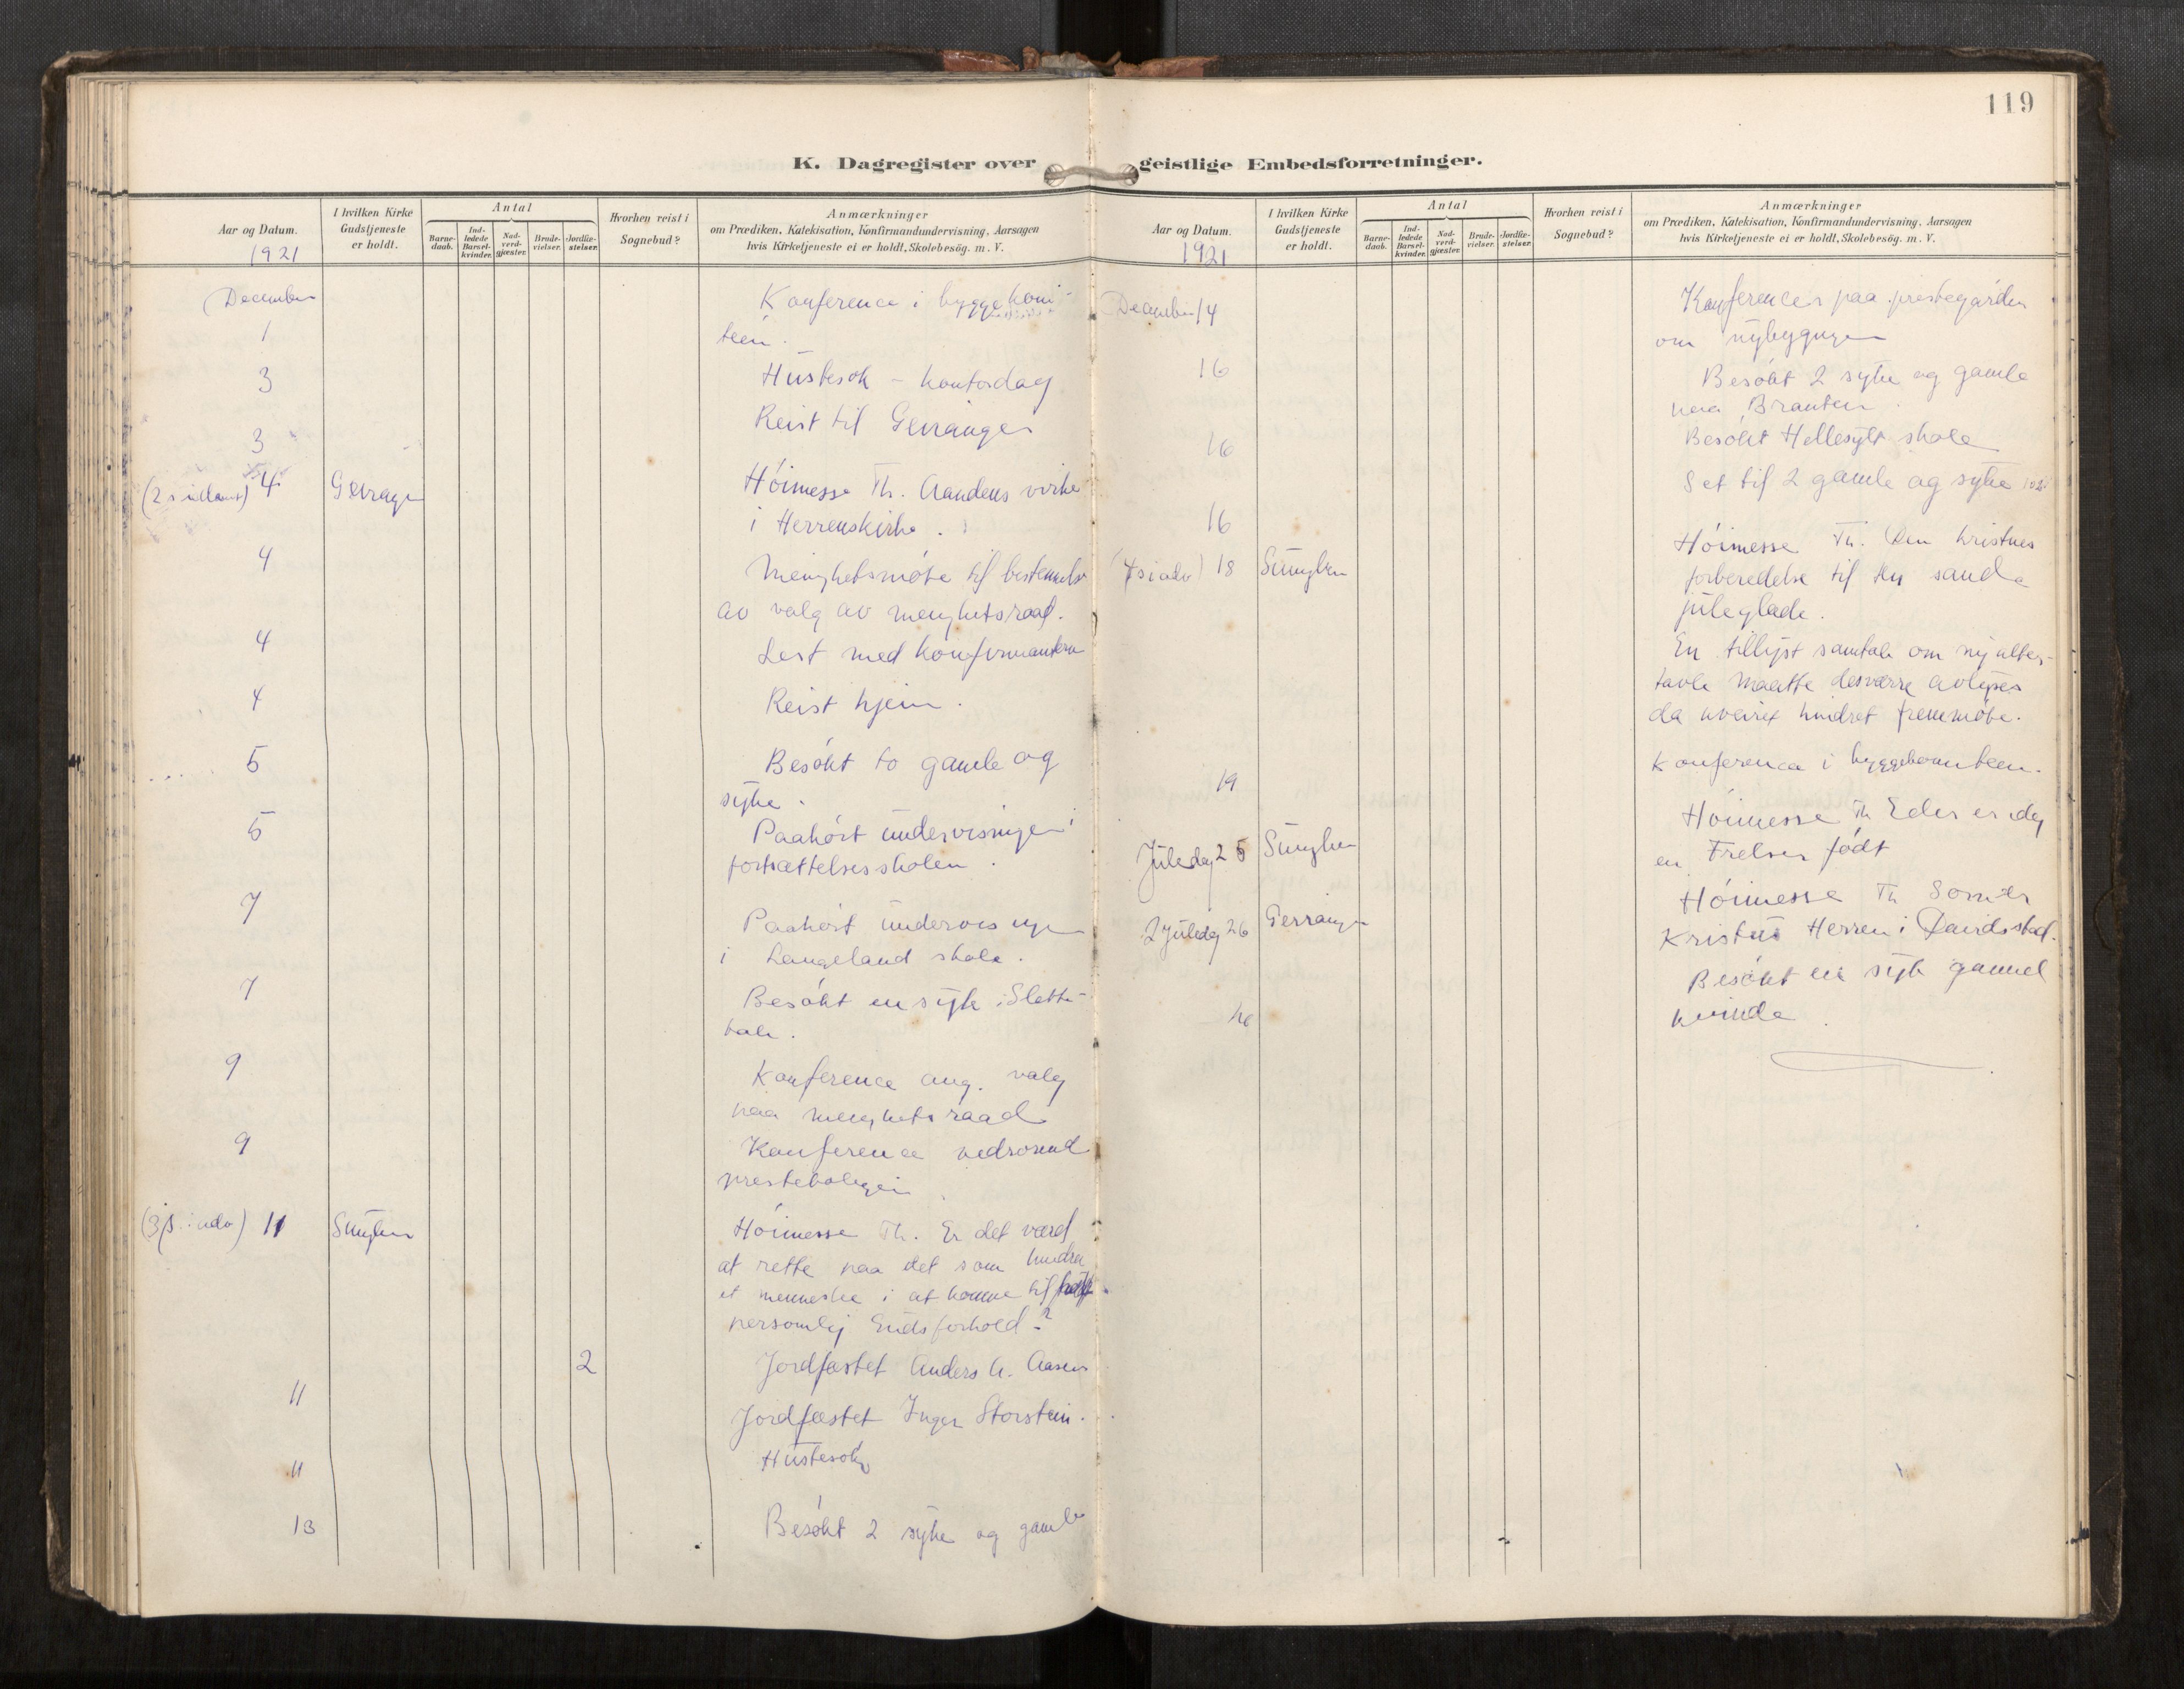 119
K. Dagregister over geistlige Embedsforretninger.
Aar og Datum.
1921
I hvilken Kirke Gudstjeneste er holdt.
Antal
Barne-daab.
Ind-ledede Barsel-kvinder.
Nad-verd-gjæster.
Brude-vielser.
Jordfæ-stelser.
Hvorhen reist i Sognebud?
Anmærkninger
om Prædiken, Katekisation, Konfirmandundervisning, Aarsagen
hvis Kirketjeneste ei er holdt, Skolebesøg. m. V.
December
1 Konference i byggekomi-
teen.
3 Husbesøk - kontordag
3 Reist til Geiranger
(2 s i advent) 4 Geiranger Høimesse Th. Aandens virke
i Herrens kirke.
4 Menighetsmøte til bestemmelse
av valg av menighetsraad.
4 Lest med konfirmanterne
4 Reist hjem.
5 Besøkt to gamle og
syke.
5 Paahørt undervisningen i
fortsættelsesskolen.
7 Paahørt undervisningen
i Langeland skole.
7 Besøkt en syk i Slette-
dale.
9 Konference ang. valg
paa menighetsraad
9 Konference vedrørende
presteboligen
(3 s. i adv) 11 Sunylven Høimesse Th. Er det værd
at rette paa det som hindrer
et menneske i at komme til
personlig Gudsforhold?
2 Jordfæstet Anders A. Aasen
11 Jordfæstet Inger Storstein.
11 Husbesøk
13 Besøkt 2 syke og gamle
Aar og Datum.
1921
I hvilken Kirke Gudstjeneste er holdt.
Antal
Barne-daab.
Ind-ledede Barsel-kvinder.
Nad-verd-gjæster.
Brude-vielser.
Jordfæ-stelser.
Hvorhen reist i Sognebud?
Anmærkninger
om Prædiken, Katekisation, Konfirmandundervisning, Aarsagen
hvis Kirketjeneste ei er holdt, Skolebesøg. m. V.
December 14 Konference paa prestegården
om nybygningen
16 Besøkt 2 syke og gamle
paa Branten.
16 Besøkt Hellesylt skole
16 Set til 2 gamle og syke
(4 s i adv) 18 Sunylven Høimesse Th. Den kristnes
forberedelse til den sande
juleglæde.
En tillyst samtale om ny alter-
tavle maatte desværre avlyses
da uveiret hindret fremmøte.
19 Konference i byggekomiteen.
Juledag 25 Sunylven Høimesse Th Eder er idag
en Frelser født
2 Juledag 26 Geiranger Høimesse Th Som er
Kristus Herren i Davids stad.
26 Besøkt en syk gammel
kvinde.